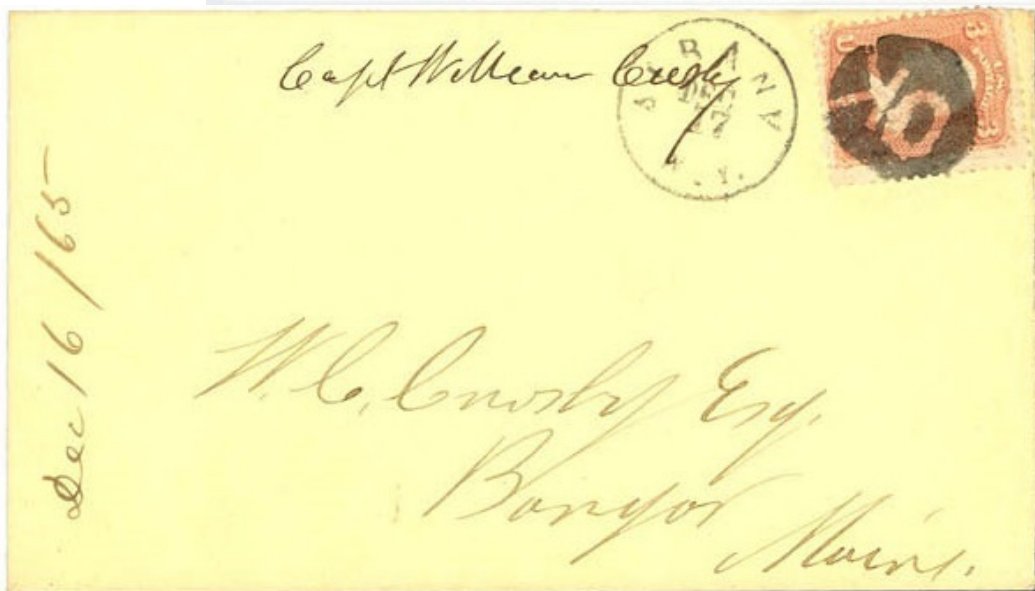 Capt William Crosby
ALBANY
DEC
N.Y.
U 3
3
Dec 16/65
W. C. Crosby Esq.
Bangor
Maine.